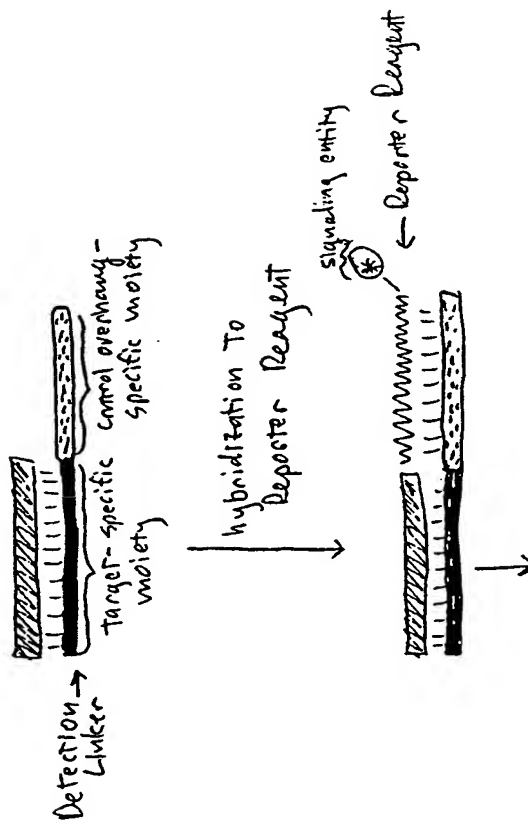 Detection
Linker
target-specific
moiety
control overhang-
specific moiety
hybridization To
Reporter Reagent
signaling entity
*
Reporter Reagent